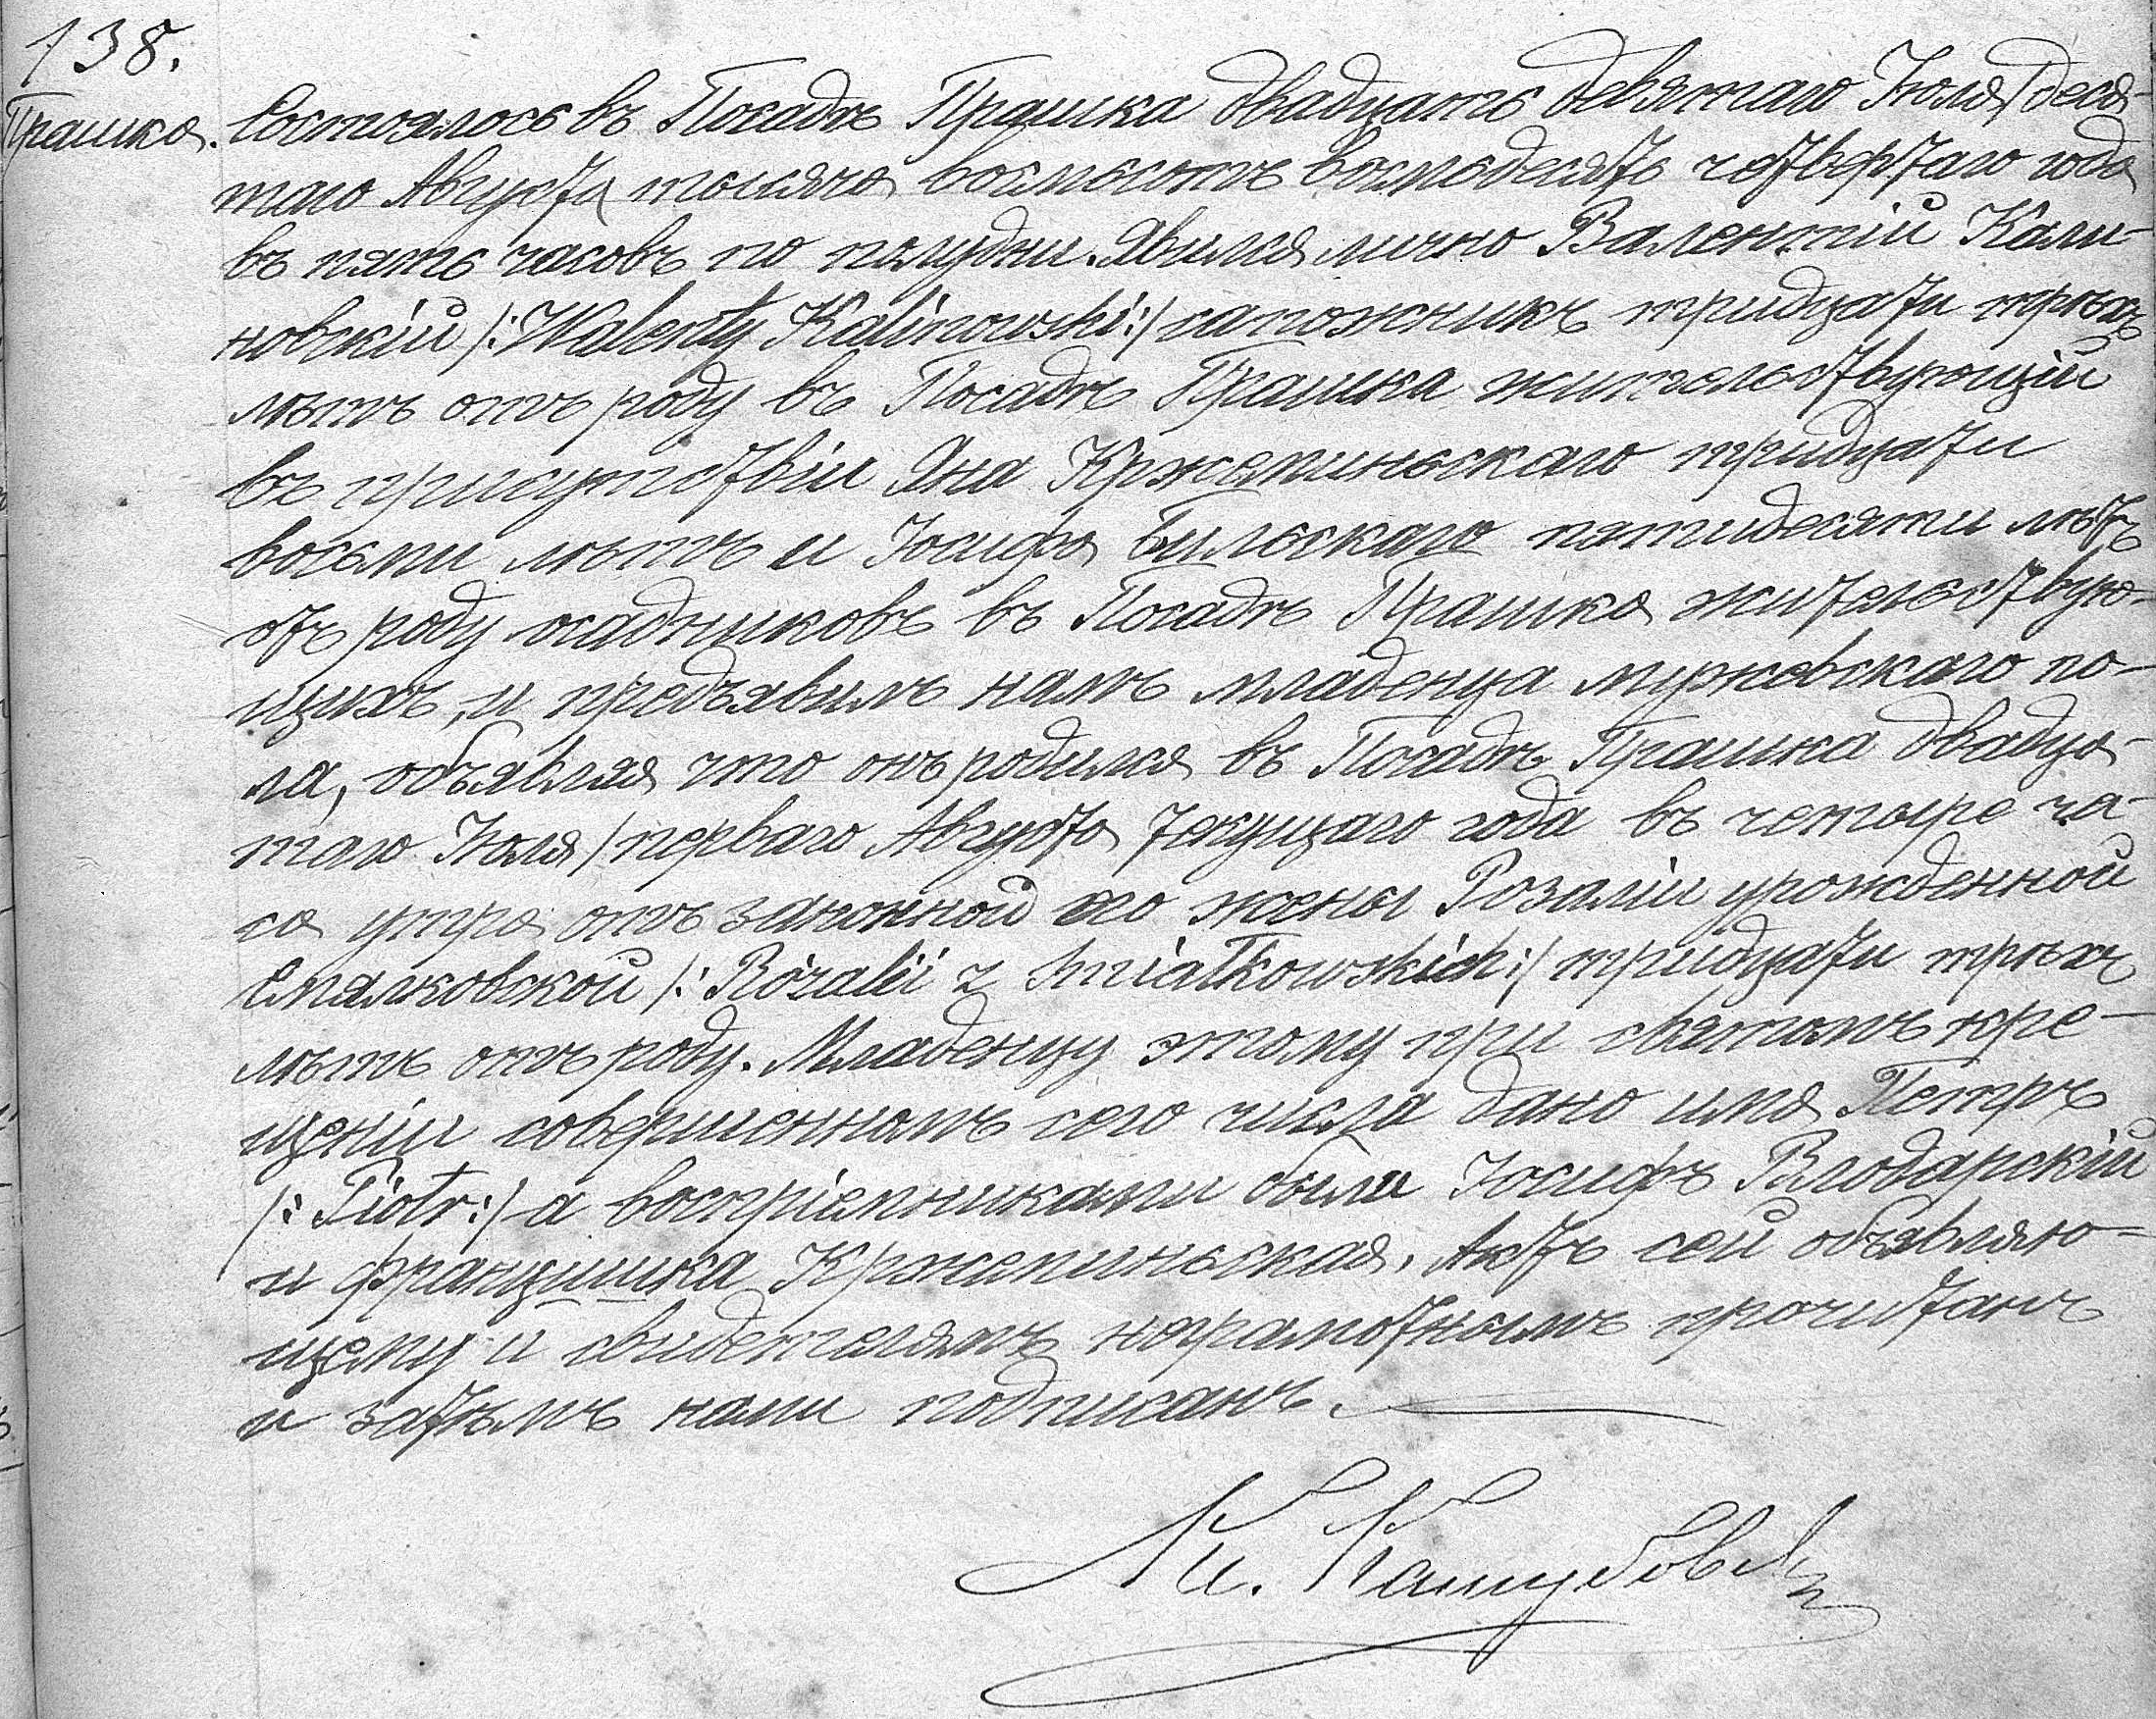 138.
Прашка.
Состоялось въ Посадѣ Прашка двадцать девятаго Іюля /деся-
таго Августа/ тысяча восемьсотъ восемьдесятъ четвертаго года
въ пять часовъ по полудни. Явился лично Валентій Кали-
новскій /:Walenty Kalinowski:/ сапожникъ тридцати трехъ
лѣтъ отъ роду въ Посадѣ Прашка жительствующій
въ присутствіи Яна Кржепиньскаго тридцати
восьми лѣтъ и Іосифа Бильскаго пятидесяти лѣтъ
отъ роду осадниковъ въ Посадѣ Прашка жительствую-
щихъ, и предъявилъ намъ младенца мужевскаго по-
ла, объявляя что онъ родился въ Посадѣ Прашка двадца-
таго Іюля /перваго Августа текущаго года въ четыре ча-
са утра отъ законной его жены Розаліи урожденной
Смялковской /: Rózalii z Smiałkowskich:/ тридцати трехъ
лѣтъ отъ роду. Младенцу этому при святомъ кре-
щеніи совершенномъ сего числа дано имя Петръ
/: Piotr:/ а воспріемниками были Іосифъ Влодарскій
и Францишка Кржепиньская. Актъ сей объявляю-
щему и свидетелямъ неграмотнымъ прочитанъ
и затѣмъ нами подписанъ.